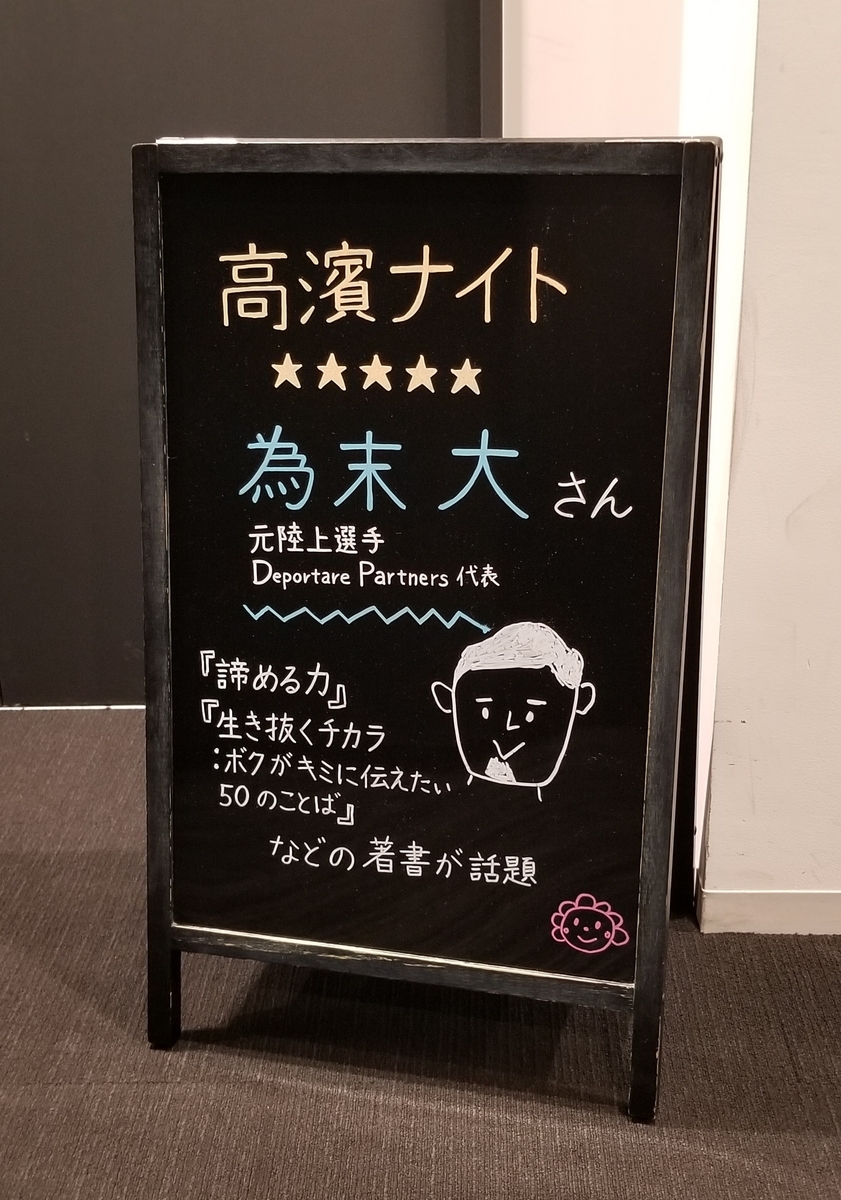 高濱ナイト
★★★★★
為末 大 さん
元陸上選手
Deportare Partners 代表
『諦める力』
『生き抜くチカラ
:ボクがキミに伝えたい
50のことば』
などの著書が話題